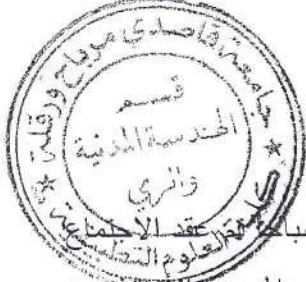 جامعة قاصدي مرباح ورقلة
قسم
الهندسة المدنية
والري
كلية العلوم التطبيقية
عقد الاجتماع